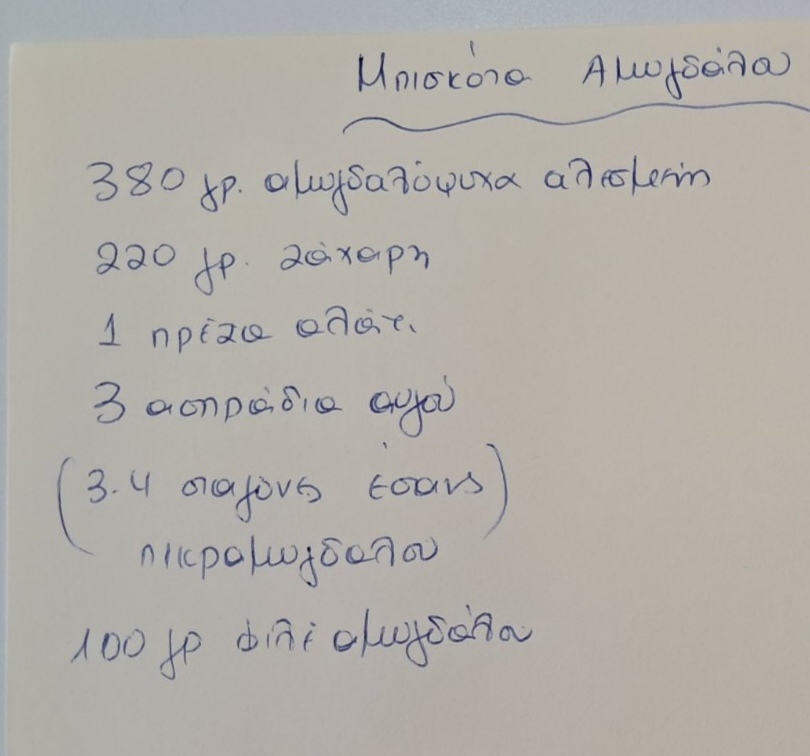 Μπισκότα Αμυγδάλου
380 γρ. αμυγδαλόψυχα αλεσμένη
220 γρ. ζάχαρη
1 πρέζα αλάτι
3 ασπράδια αυγού
(3-4 σταγόνες έσανς)
πικραμυγδάλου
100 γρ φιλέ αμυγδάλου